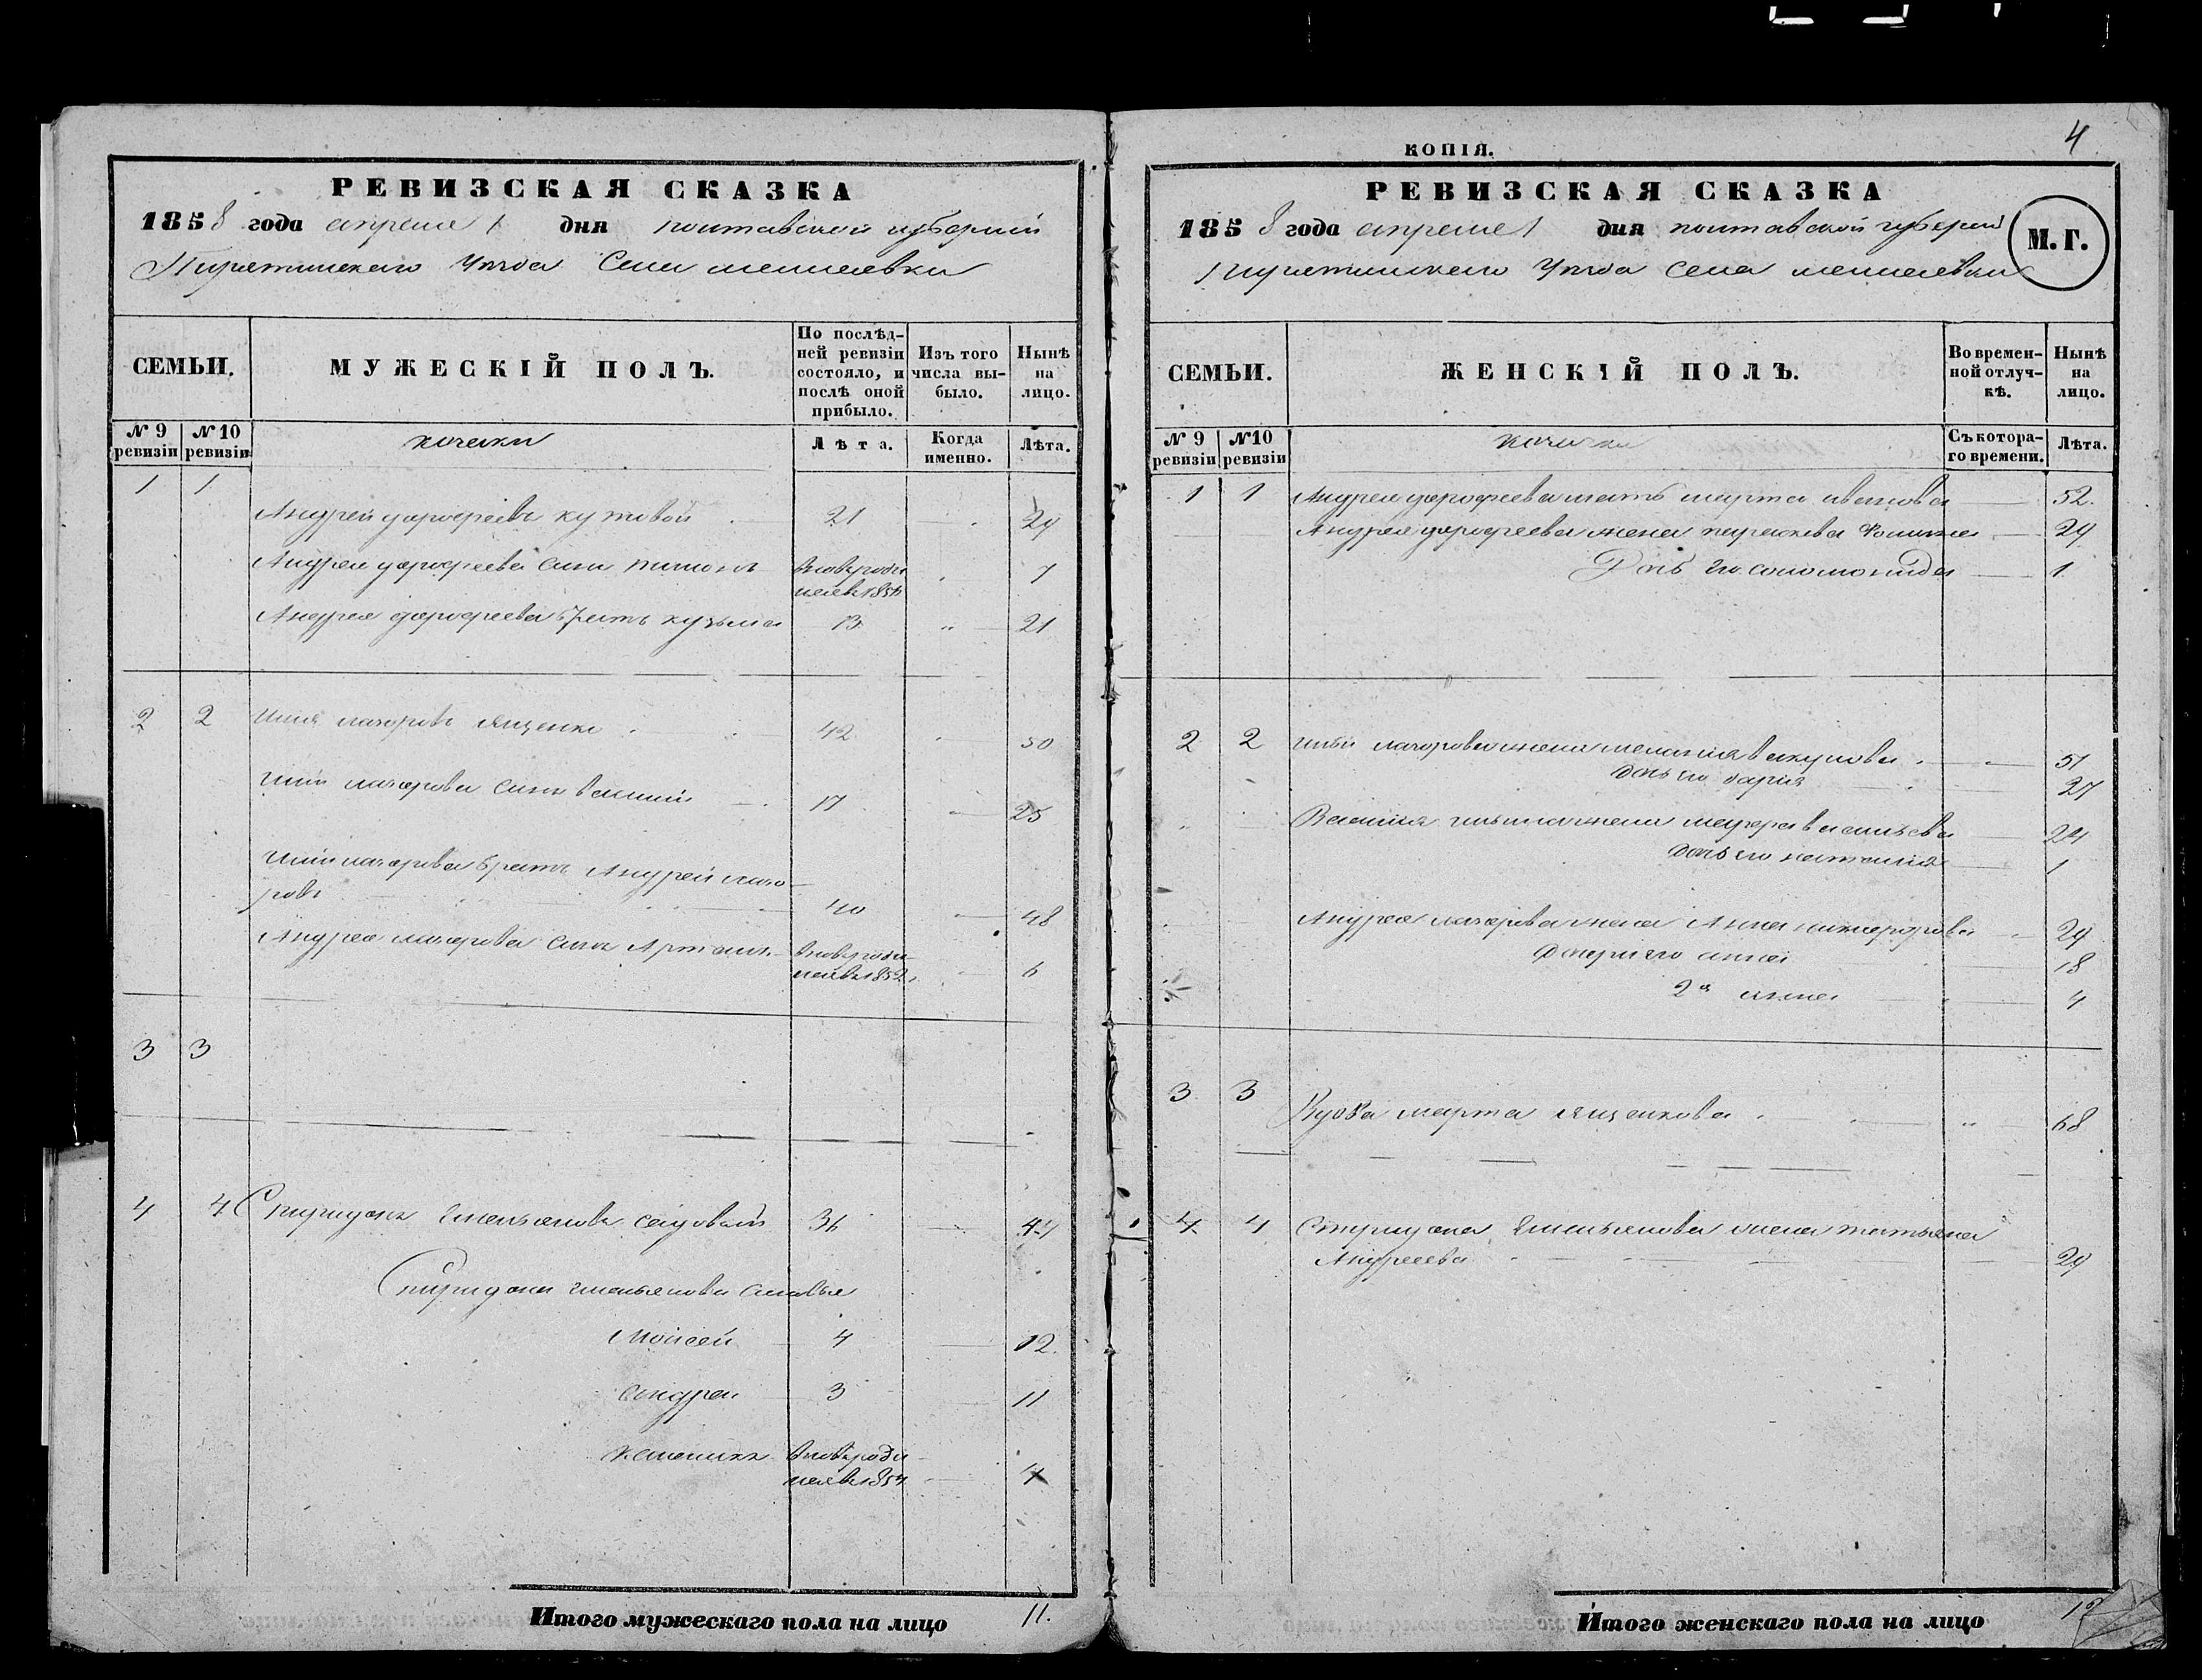 РЕВИЗСКАЯ СКАЗКА
1858 года апреля 1 дня полтавской губернии
Пирятинского Уезда Села
СЕМЬИ.
МУЖЕСКІЙ ПОЛЪ.
По послѣд-
ней ревизіи
состояло, и
послѣ оной
прибыло.
Изъ того
числа вы-
было.
Нынѣ
на
лицо.
№ 9
ревизіи
№ 10
ревизіи
козаки
Лѣта.
Когда
именно.
Лѣта.
1 1
Андрей дорофеевъ кутовой 21 29
Андрея дорофеева сынъ вновь роди 7
лся въ
Андрея дорофеева братъ кузьма 13 " 21
2 2 илія лазоревъ ященко 42 50
иліи лазорева сынъ василій 17 25
иліи лазорева братъ Андрей лазо-
ревъ 40 48
Андрея лазорева сынъ вновь роди-
лся въ 1852 6
3 3
4 4 Спиридонъ емельяновъ садовый 36 44
Спиридона емельянова сыновья
Моисей 4 12
андрей 3 11
вновь роди
лся въ 1854 4
Итого мужескаго пола на лицо 11.
4
КОПІЯ.
РЕВИЗСКАЯ СКАЗКА
1858 года апреля 1 дня полтавской губерніи
М. Г.
пирятинского Уезда Села
СЕМЬИ.
ЖЕНСКІЙ ПОЛЪ.
Во времен-
ной отлуч-
кѣ.
Нынѣ
на
лицо.
№ 9
ревизіи
№ 10
ревизіи
козаки
Съ котора-
го времени.
Лѣта.
1 1 Андрея дорофеева мать марта иванова 52.
Андрея дорофеева жена параскева 29
Дочь его соломонида 1
2 2 иліи лазорева жена меланія вакулова 51
дочь его дарія 27
Василия ильина жена васильева 24
дочь его наталия 1
Андрея лазорева жена Анна никифорова 29
дочери его 18
2я анна 4
3 3 Вдова марта ященкова " 68
4 4 Спиридона Емельянова жена татьяна
Андреева 29
Итого женскаго пола на лицо